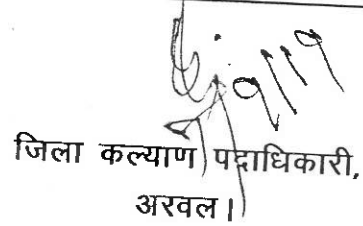 जिला कल्याण पदाधिकारी,
अरवल।